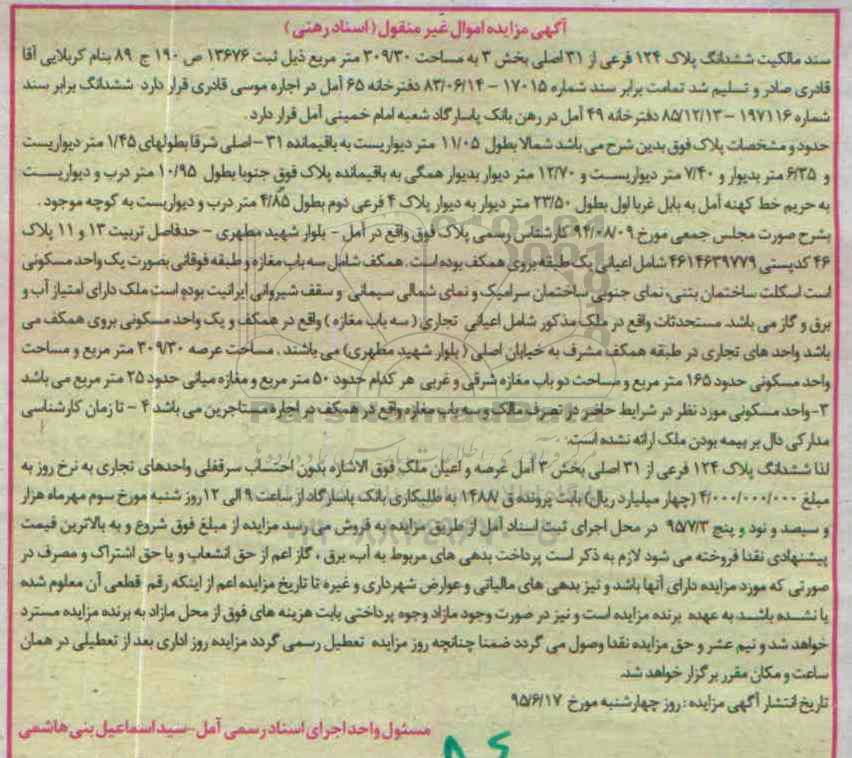 آگهی مزایده اموال غیر منقول (اسناد رهنی)
سند مالکیت ششدانگ پلاک ۱۲۴ فرعی از ۳۱ اصلی بخش ۳ به مساحت ۳۰۹/۳۰ متر مربع ذیل ثبت ۱۳۶۷۶ ص ۱۹۰ ج ۸۹ بنام کربلایی آقا
قادری صادر و تسلیم شد تمامت برابر سند شماره ۱۷۰۱۵ – ۸۳/۰۶/۱۴ دفترخانه ۶۵ آمل در اجاره موسی قادری قرار دارد ششدانگ برابر سند
شماره ۱۹۷۱۱۶ – ۸۵/۱۲/۱۳ دفتر خانه ۴۹ آمل در رهن بانک پاسارگاد شعبه امام خمینی آمل قرار دارد .
حدود و مشخصات پلاک فوق بدین شرح می باشد شمالا بطول ۱۱/۰۵ متر دیواریست به باقیمانده ۳۱ – اصلی شرقا بطولهای ۱/۴۵ متر دیواریست
و ۶/۳۵ متر بدیوار و ۷/۴۰ متر دیواریست و ۱۲/۷۰ متر دیوار بدیوار همگی به باقیمانده پلاک فوق جنوبا بطول ۱۰/۹۵ متر درب و دیواریست
به حریم خط کهنه آمل به بابل غربا اول بطول ۲۳/۵۰ متر دیوار به دیوار پلاک ۴ فرعی دوم بطول ۴/۸۵ متر درب و دیواریست به کوچه موجود .
بشرح صورت مجلس جمعی مورخ ۹۴/۰۸/۰۹ کارشناس رسمی پلاک فوق واقع در آمل – بلوار شهید مطهری – حدفاصل تربیت ۱۳ و ۱۱ پلاک
۴۶ کدپستی ۴۶۱۴۶۳۹۷۷۹ شامل اعیانی یک طبقه بروی همکف بوده است . همکف شامل سه باب مغازه و طبقه فوقانی بصورت یک واحد مسکونی
است اسکلت ساختمان بتنی، نمای جنوبی ساختمان سرامیک و نمای شمالی سیمانی و سقف شیروانی ایرانیت بوده است ملک دارای امتیاز آب و
برق و گاز می باشد. مستحدثات واقع در ملک مذکور شامل اعیانی تجاری (سه باب مغازه) واقع در همکف و یک واحد مسکونی بروی همکف می
باشد واحد های تجاری در طبقه همکف مشرف به خیابان اصلی (بلوار شهید مطهری) می باشند . مساحت عرصه ۳۰۹/۳۰ متر مربع و مساحت
واحد مسکونی حدود ۱۶۵ متر مربع و مساحت دو باب مغازه شرقی و غربی هر کدام حدود ۵۰ متر مربع و مغازه میانی حدود ۲۵ متر مربع می باشد
۳- واحد مسکونی مورد نظر در شرایط حاضر در تصرف مالک و سه باب مغازه واقع در همکف در اجاره مستاجرین می باشد ۴ – تا زمان کارشناسی
مدارکی دال بر بیمه بودن ملک ارائه نشده است.
لذا ششدانگ پلاک ۱۲۴ فرعی از ۳۱ اصلی بخش ۳ آمل عرصه و اعیان ملک فوق الاشاره بدون احتساب سرقفلی واحدهای تجاری به نرخ روز به
مبلغ ۴/۰۰۰/۰۰۰/۰۰۰ (چهار میلیارد ریال) بابت پرونده ق ۱۴۸۸/ به طلبکاری بانک پاسارگاد از ساعت ۹ الی ۱۲ روز شنبه مورخ سوم مهرماه هزار
و سیصد و نود و پنج ۹۵/۷/۳ در محل اجرای ثبت اسناد آمل از طریق مزایده به فروش می رسد مزایده از مبلغ فوق شروع و به بالاترین قیمت
پیشنهادی نقدا فروخته می شود لازم به ذکر است پرداخت بدهی های مربوط به آب، برق ، گاز اعم از حق انشعاب و یا حق اشتراک و مصرف در
صورتی که مورد مزایده دارای آنها باشد و نیز بدهی های مالیاتی و عوارض شهرداری و غیره تا تاریخ مزایده اعم از اینکه رقم قطعی آن معلوم شده
یا نشده باشد به عهده برنده مزایده است و نیز در صورت وجود مازاد وجوه پرداختی بابت هزینه های فوق از محل مازاد به برنده مزایده مسترد
خواهد شد و نیم عشر و حق مزایده نقدا وصول می گردد ضمنا چنانچه روز مزایده تعطیل رسمی گردد مزایده روز اداری بعد از تعطیلی در همان
ساعت و مکان مقرر برگزار خواهد شد.
تاریخ انتشار آگهی مزایده : روز چهارشنبه مورخ ۹۵/۶/۱۷
مسئول واحد اجرای اسناد رسمی آمل – سید اسماعیل بنی هاشمی
ParsNamadData